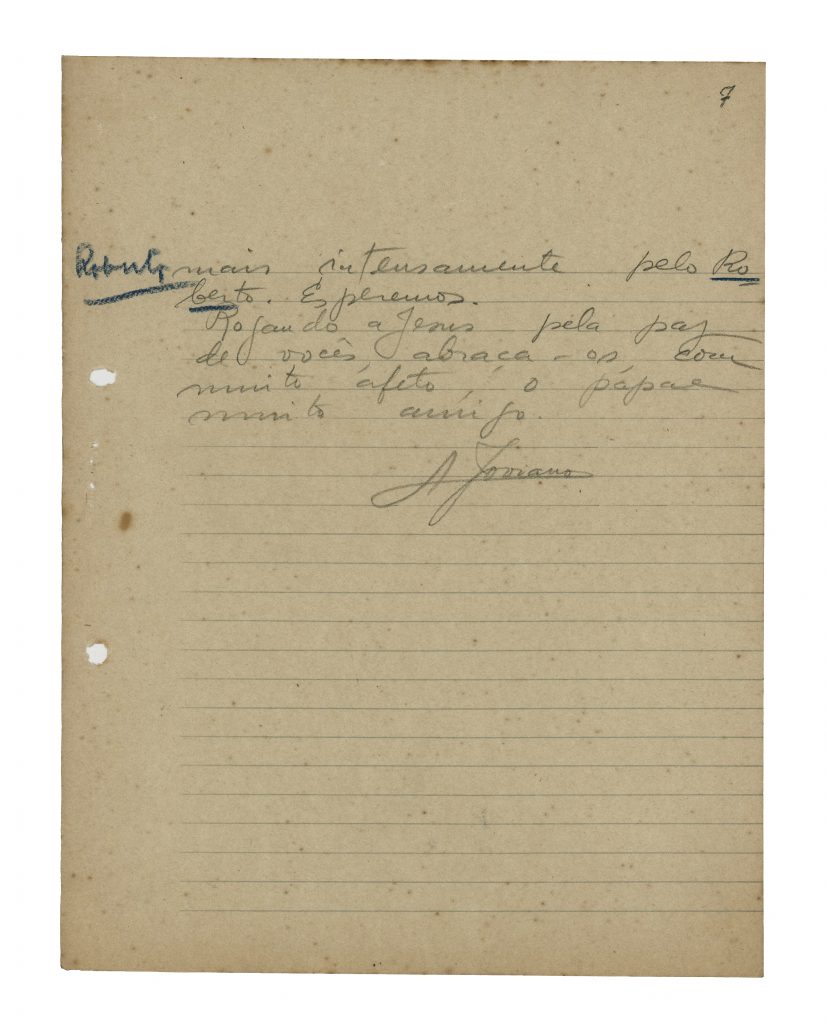 7
Roberto mais intensamente pelo Ro-
berto. Esperemos.
Rogando a Jesus pela paz
de vocês, abraça-os, com
muito afeto, o papae
muito amigo.
A Joviano